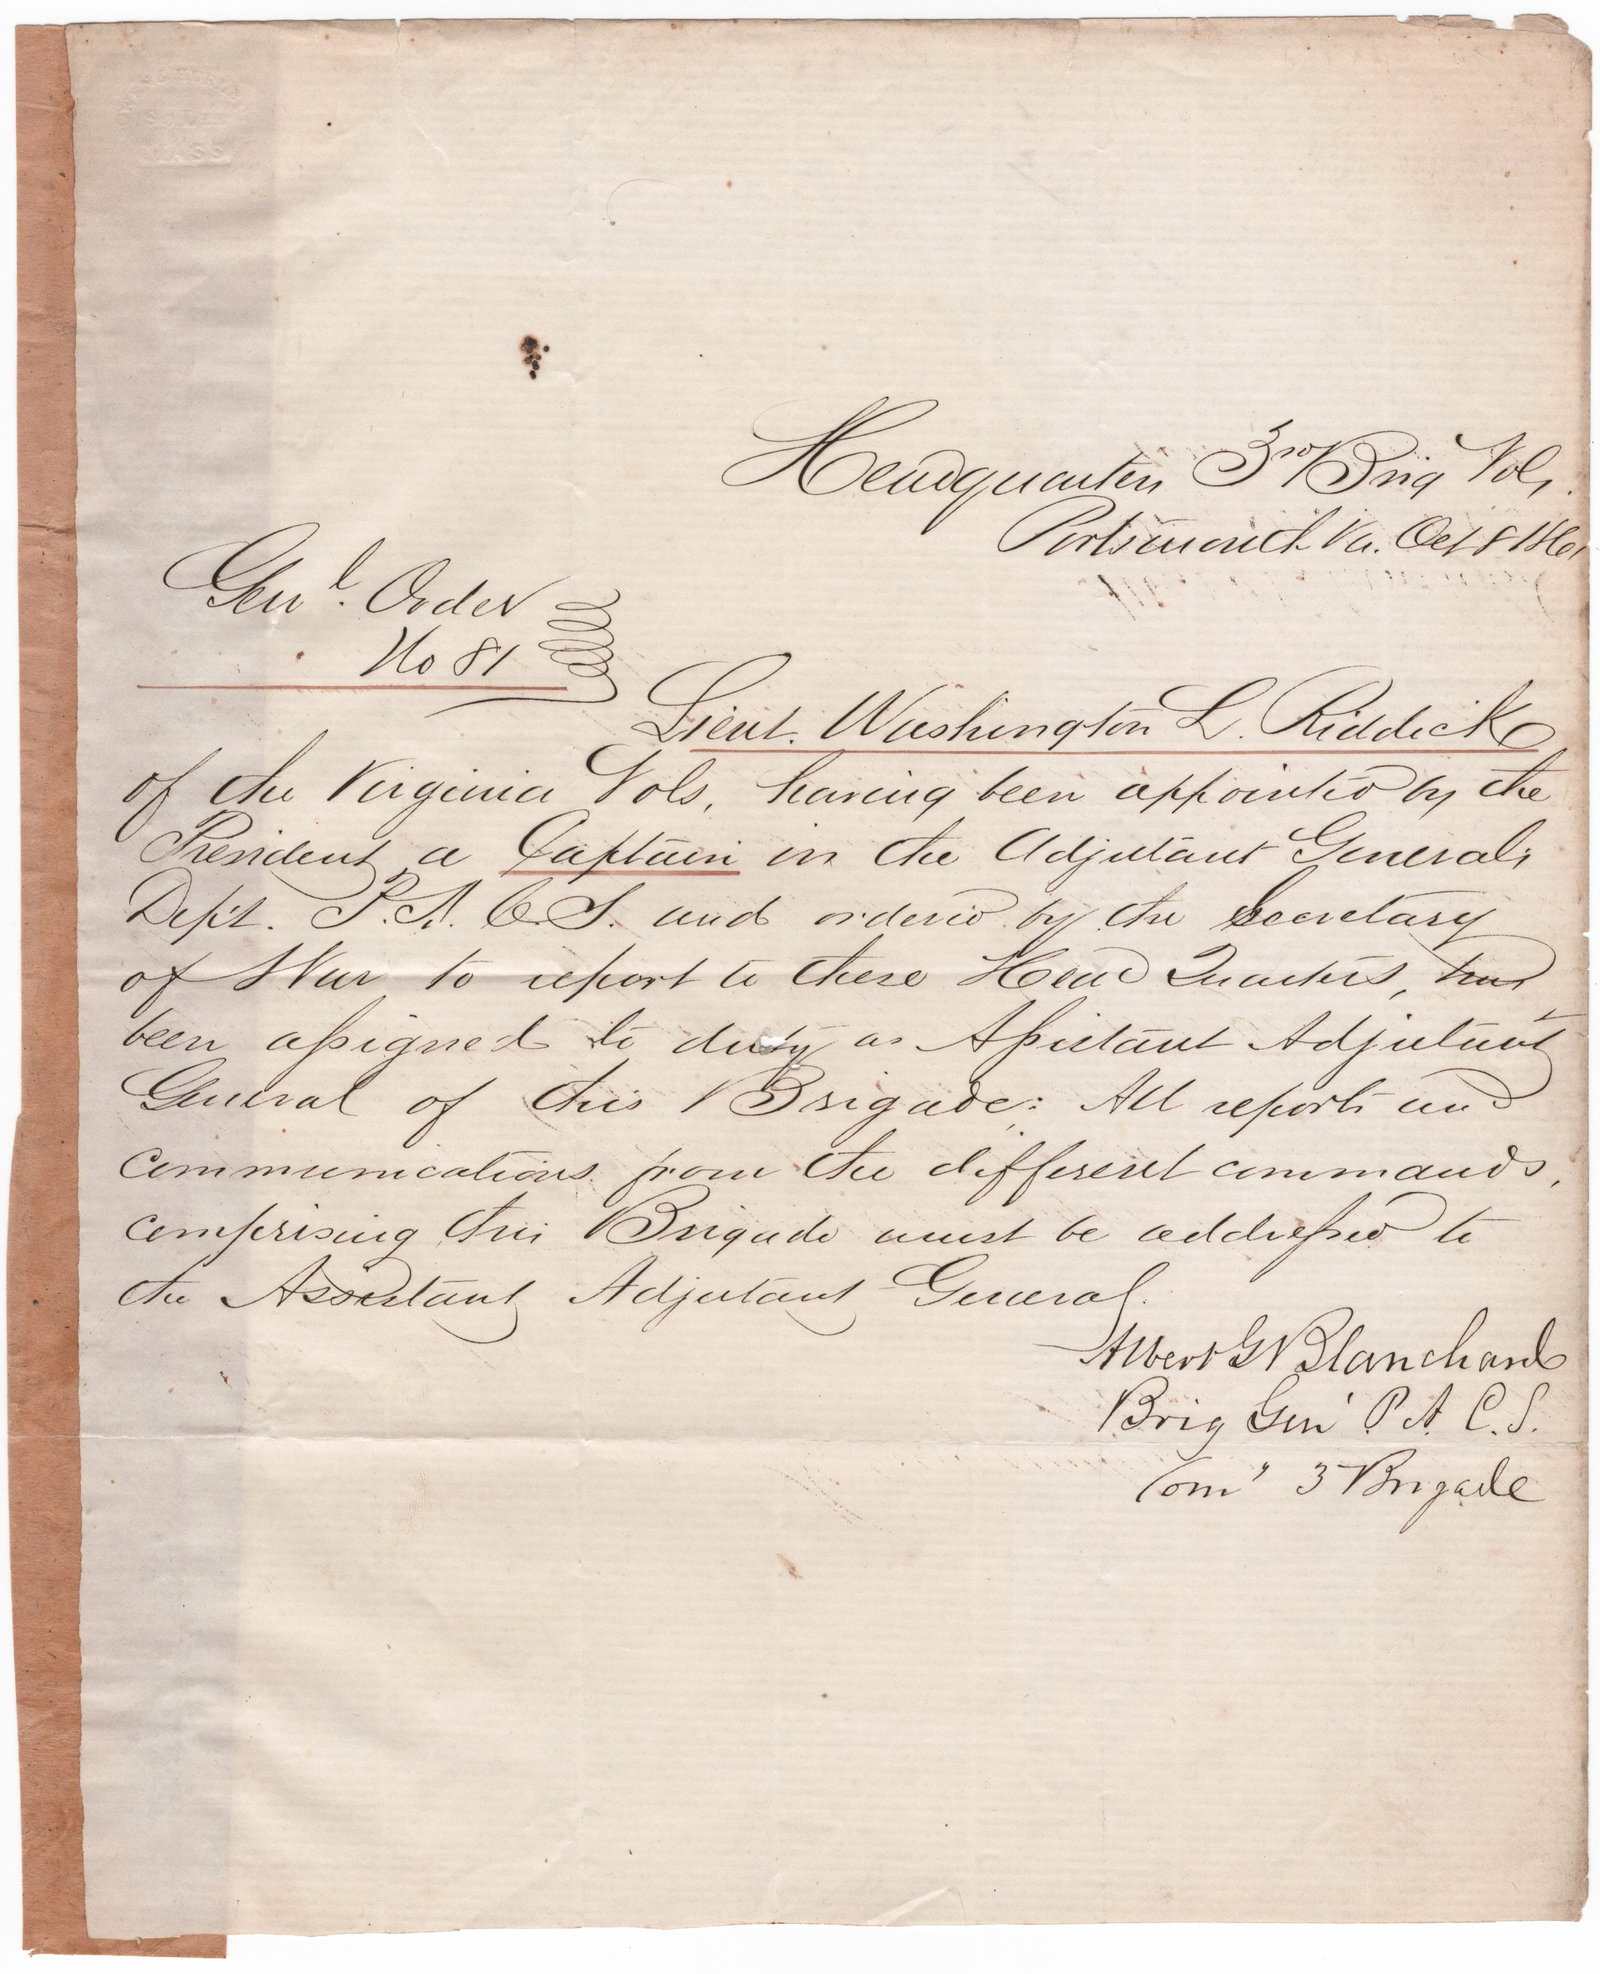 MASS
Headquarters 3rd Brig Vols.
Portsmouth Va. Oct 8 1861
Genl. Order
No 81
Lieut. Washington L. Riddick
of the Virginia Vols, having been appointed by the
President a Captain in the Adjutant Generals
Dept. P. A. C. S. and ordered by the Secretary
of War to report to these Head Quarters, has
been assigned to duty as Assistant Adjutant
General of this Brigade: All reports and
communications from the different commands,
comprising this Brigade must be addressed to
the Assistant Adjutant General.
Albert G Blanchard
Brig Genl P. A. C. S.
Comg 3 Brigade